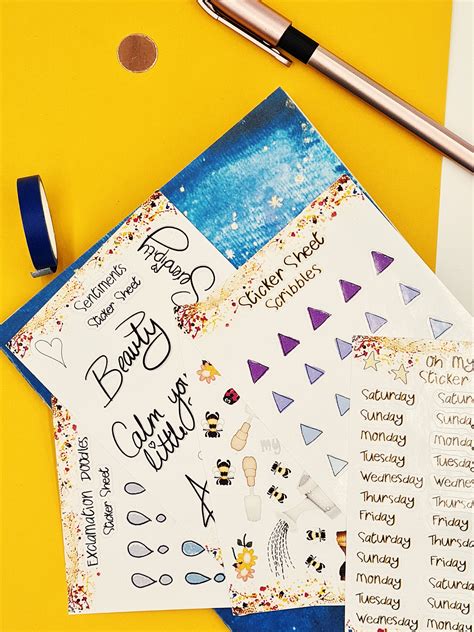 Sentiments
Sticker Sheet
Beauty
Calm you
little
A
Sticker Sheet
Scribbles
my
Exclamation Doodles
Sticker Sheet
Oh My
Sticker
Saturday Saturday
Sunday Sunday
Monday Monday
Tuesday Tuesday
Wednesday Wednesday
Thursday Thursday
Friday Friday
Saturday
Sunday
Monday
Tuesday
Wednesday